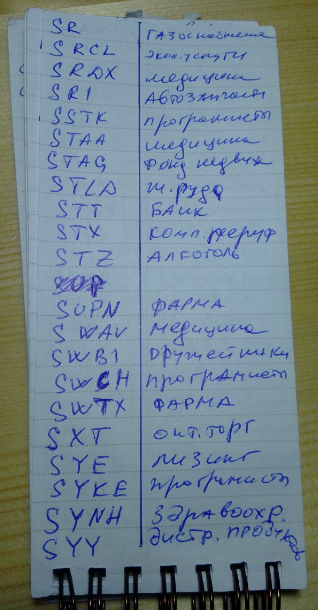 SR газоснабжение
SRCL экол. услуги
SRDX медицина
SRI Автозапчасти
SSTK програмисты
STAA медицина
STAG Фонд недвиж
STLD ж. руда
STT БАНК
STX комп. периф
STZ Алкоголь
SUPN ФАРМА
SWAV Медицина
SWBI Оружейники
SWCH програмисты
SWTX ФАРМА
SXT опт. торг
SYE лизинг
SYKE програмисты
SYNH Здравоохр.
SYY дистр. продуктов